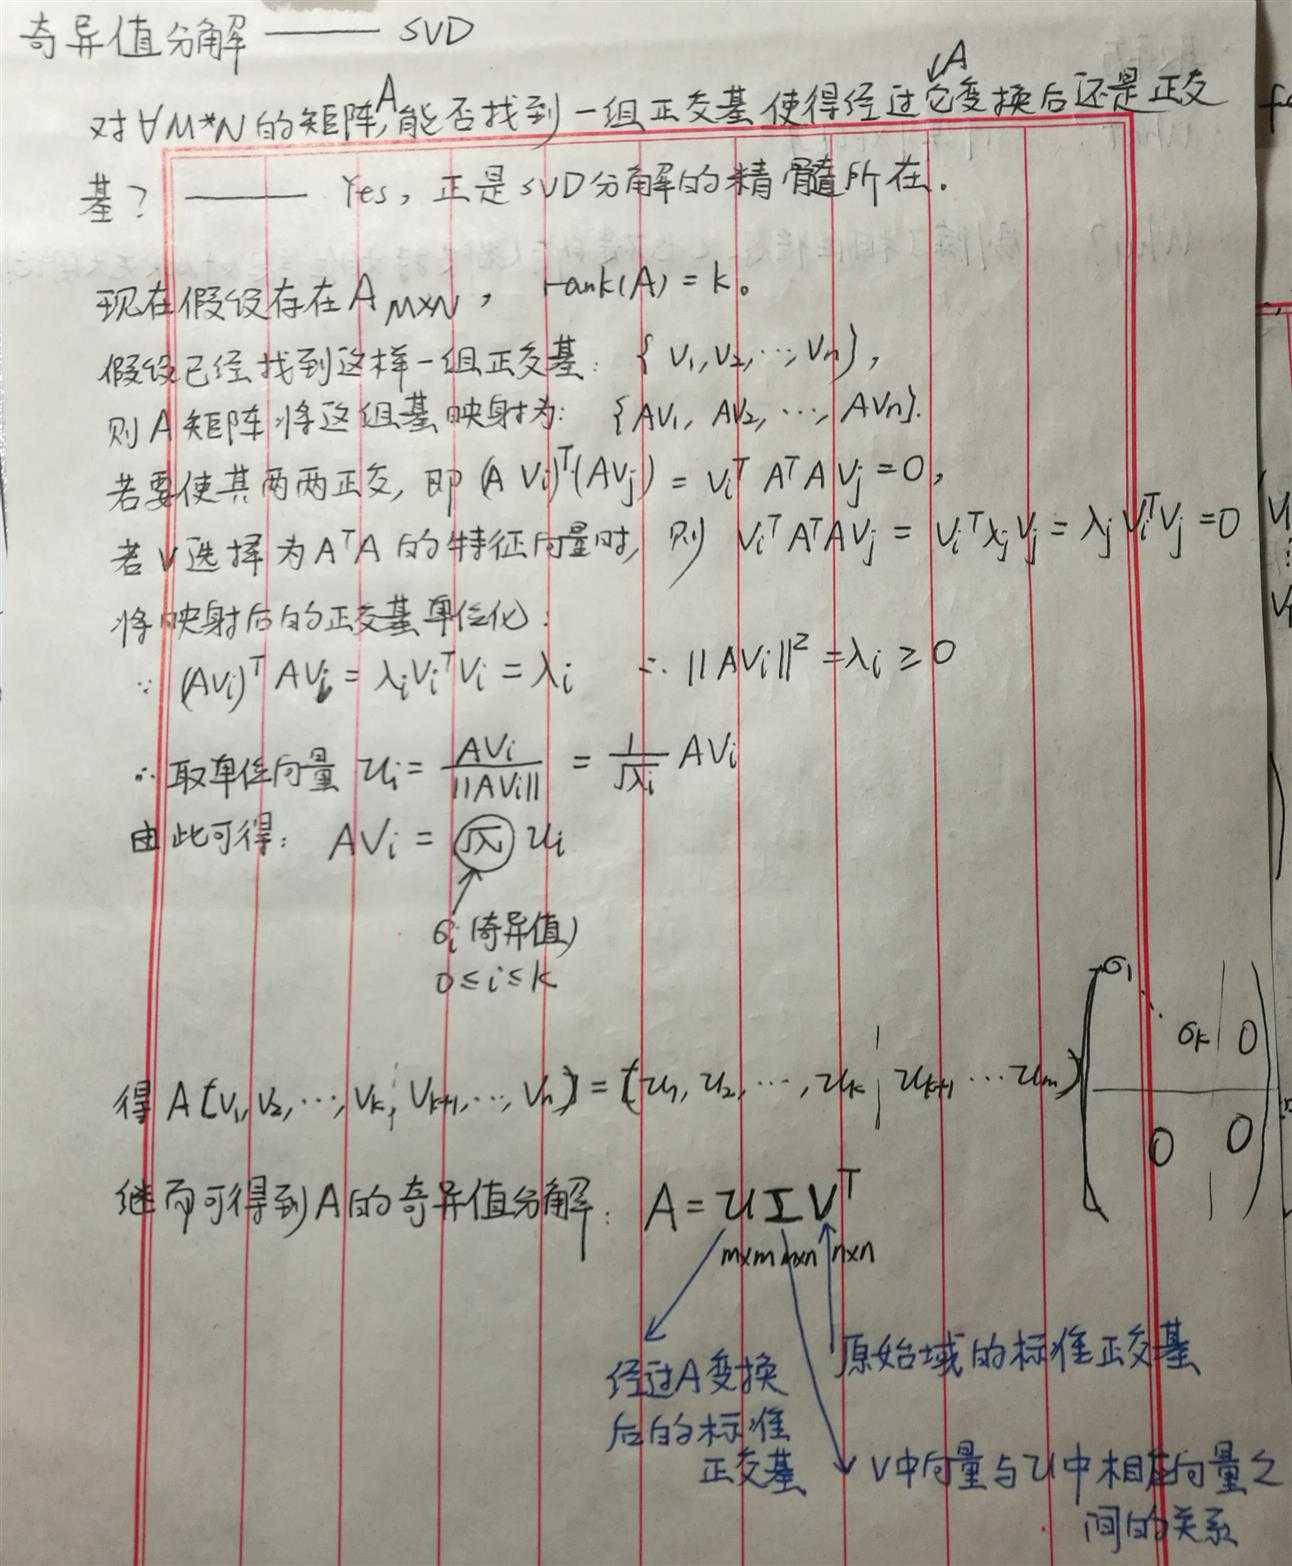 奇异值分解 —— SVD
对∀M*N的矩阵A,能否找到一组正交基使得经过它A变换后还是正交
基? —— Yes, 正是SVD分解的精髓所在.
现在假设存在A_{M×N}, rank(A)=k。
假设已经找到这样一组正交基: {v₁,v₂,…,vₙ},
则A矩阵将这组基映射为: {Av₁, Av₂, …, Avₙ}.
若要使其两两正交, 即 (A vᵢ)ᵀ(Avⱼ) = vᵢᵀ Aᵀ A vⱼ = 0,
若v选择为AᵀA的特征向量时, 则 vᵢᵀAᵀAvⱼ = vᵢᵀλⱼvⱼ = λⱼvᵢᵀvⱼ = 0
将映射后的正交基单位化:
∵ (Avᵢ)ᵀ Avᵢ = λᵢvᵢᵀvᵢ = λᵢ ∴ ||Avᵢ||² = λᵢ ≥ 0
∴ 取单位向量 uᵢ = Avᵢ/||Avᵢ|| = 1/√λᵢ Avᵢ
由此可得: Avᵢ = √λᵢ uᵢ
σᵢ(奇异值)
0≤i≤k
得 A(v₁,v₂,…,vₖ¦vₖ₊₁,…,vₙ) = (u₁,u₂,…,uₖ¦uₖ₊₁…uₘ) (σ₁ ⋱ σₖ | 0
0 | 0)
继而可得到A的奇异值分解: A = UΣVᵀ
m×m m×n n×n
原始域的标准正交基
经过A变换
后的标准
正交基
V中向量与U中相应向量之
间的关系